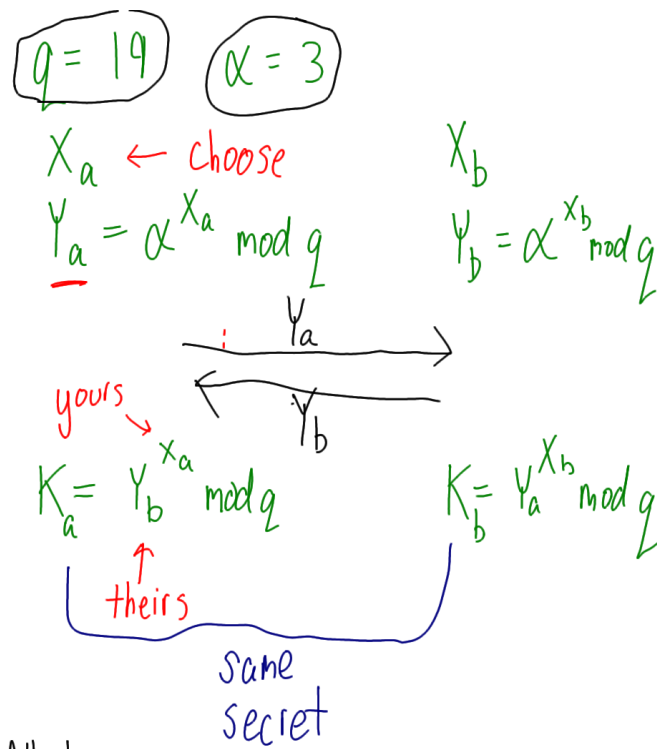 q = 19   α = 3
Xa ← choose   Xb
Ya = α^Xa mod q   Yb = α^Xb mod q
Ya
Yb
yours
Ka = Yb^Xa mod q   Kb = Ya^Xb mod q
theirs
same
secret